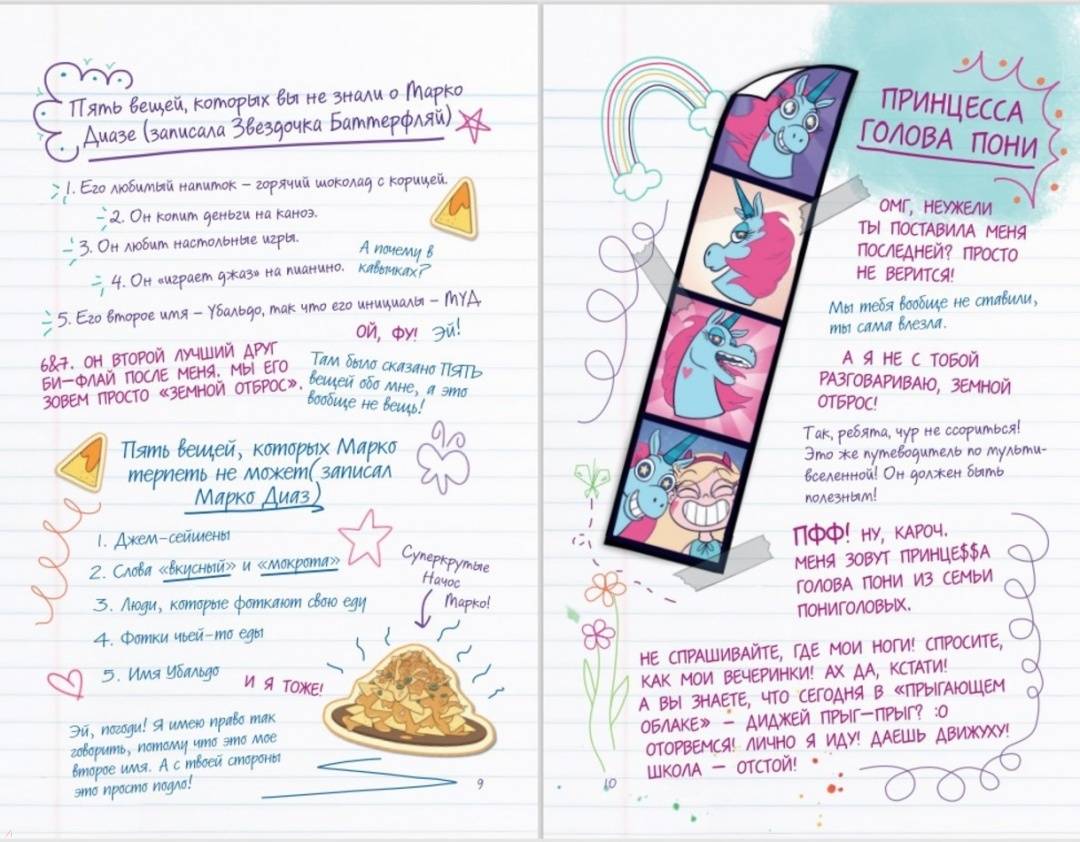 Пять вещей, которых вы не знали о Марко
Диазе (записала Звездочка Баттерфляй)
1. Его любимый напиток – горячий шоколад с корицей.
2. Он копит деньги на каноэ.
3. Он любит настольные игры.
А почему в
кавычках?
4. Он «играет джаз» на пианино.
5. Его второе имя – Убальдо, так что его инициалы – МУД
ОЙ, ФУ! Эй!
6&7. ОН ВТОРОЙ ЛУЧШИЙ ДРУГ
БИ–ФЛАЙ ПОСЛЕ МЕНЯ. МЫ ЕГО
ЗОВЕМ ПРОСТО «ЗЕМНОЙ ОТБРОС».
Там было сказано ПЯТЬ
вещей обо мне, а это
вообще не вещь!
Пять вещей, которых Марко
терпеть не может(записал
Марко Диаз)
1. Джем-сейшены
2. Слова «вкусный» и «мокрота»
3. Люди, которые фоткают свою еду
4. Фотки чьей-то еды
5. Имя Убальдо
И Я ТОЖЕ!
Суперкрутые
Начос
Марко!
Эй, погоди! Я имею право так
говорить, потому что это мое
второе имя. А с твоей стороны
это просто подло!
9
ПРИНЦЕССА
ГОЛОВА ПОНИ
ОМГ, НЕУЖЕЛИ
ТЫ ПОСТАВИЛА МЕНЯ
ПОСЛЕДНЕЙ? ПРОСТО
НЕ ВЕРИТСЯ!
Мы тебя вообще не ставили,
ты сама влезла.
А Я НЕ С ТОБОЙ
РАЗГОВАРИВАЮ, ЗЕМНОЙ
ОТБРОС!
Так, ребята, чур не ссориться!
Это же путеводитель по мульти-
вселенной! Он должен быть
полезным!
ПФФ! НУ, КАРОЧ.
МЕНЯ ЗОВУТ ПРИНЦЕ$$А
ГОЛОВА ПОНИ ИЗ СЕМЬИ
ПОНИГОЛОВЫХ.
НЕ СПРАШИВАЙТЕ, ГДЕ МОИ НОГИ! СПРОСИТЕ,
КАК МОИ ВЕЧЕРИНКИ! АХ ДА, КСТАТИ!
А ВЫ ЗНАЕТЕ, ЧТО СЕГОДНЯ В «ПРЫГАЮЩЕМ
ОБЛАКЕ» – ДИДЖЕЙ ПРЫГ–ПРЫГ? :О
ОТОРВЕМСЯ! ЛИЧНО Я ИДУ! ДАЕШЬ ДВИЖУХУ!
ШКОЛА – ОТСТОЙ!
10